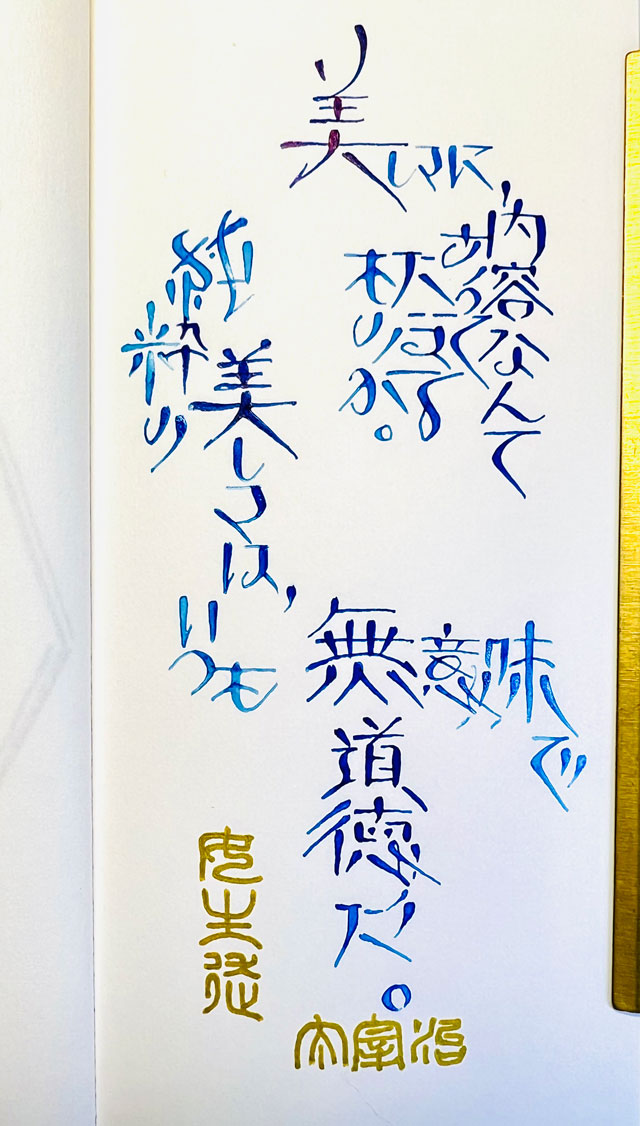 美しさに、
内容なんて
あって
たまる
ものか。
純粋の
美しさは、
いつも
無意味で
無道徳だ。
女生徒
太宰治